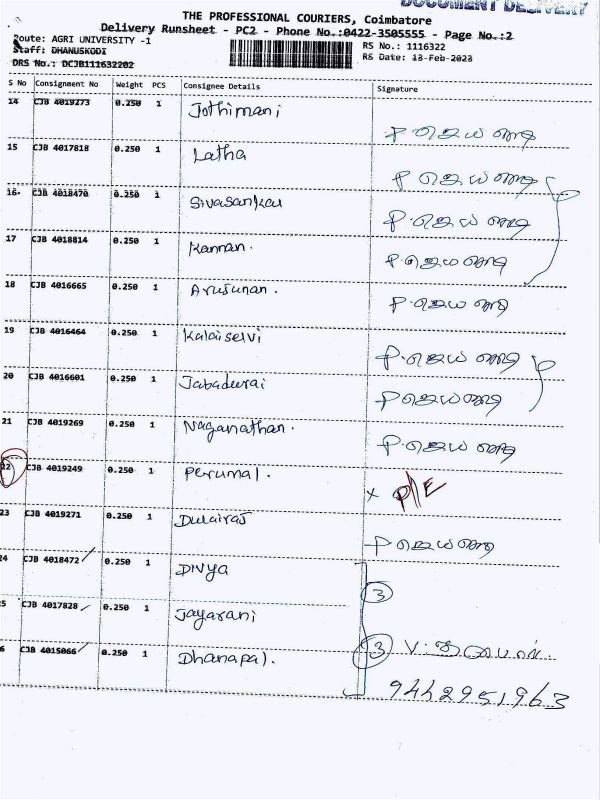 DOCUMENT DELIVERY
THE PROFESSIONAL COURIERS, Coimbatore
Delivery Runsheet - PC2 - Phone No.:0422-3505555 - Page No.:2
Route: AGRI UNIVERSITY -1 RS No.: 1116322
Staff: DHANUSKODI RS Date: 13-Feb-2023
DRS No.: DCJB111632202
S No Consignment No Weight PCS Consignee Details Signature
14 CJB 4019273 0.250 1 Jothimani
15 CJB 4017818 0.250 1 Latha
16 CJB 4018470 0.250 1 Sivasankar
17 CJB 4018814 0.250 1 Kannan.
18 CJB 4016665 0.250 1 Arujunan.
19 CJB 4016464 0.250 1 Kalaiselvi
20 CJB 4016601 0.250 1 Jabadurai
21 CJB 4019269 0.250 1 Naganathan.
22 CJB 4019249 0.250 1 Perumal. x D/E
23 CJB 4019271 0.250 1 Durairaj
24 CJB 4018472 0.250 1 Divya 3
25 CJB 4017828 0.250 1 Jayarani
26 CJB 4015066 0.250 1 Dhanapal. 3
9442951963